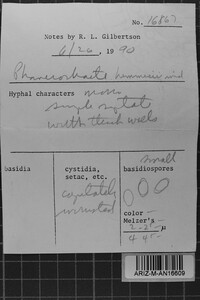 No. 16867
Notes by R. L. Gilbertson
6/26, 1990
Phanerochaete
Hyphal characters mono
simple septate
with thick walls
basidia
cystidia,
setae, etc.
capitately
incrusted
small
basidiospores
color —
Melzer's —
μ
ARIZ-M-AN16609